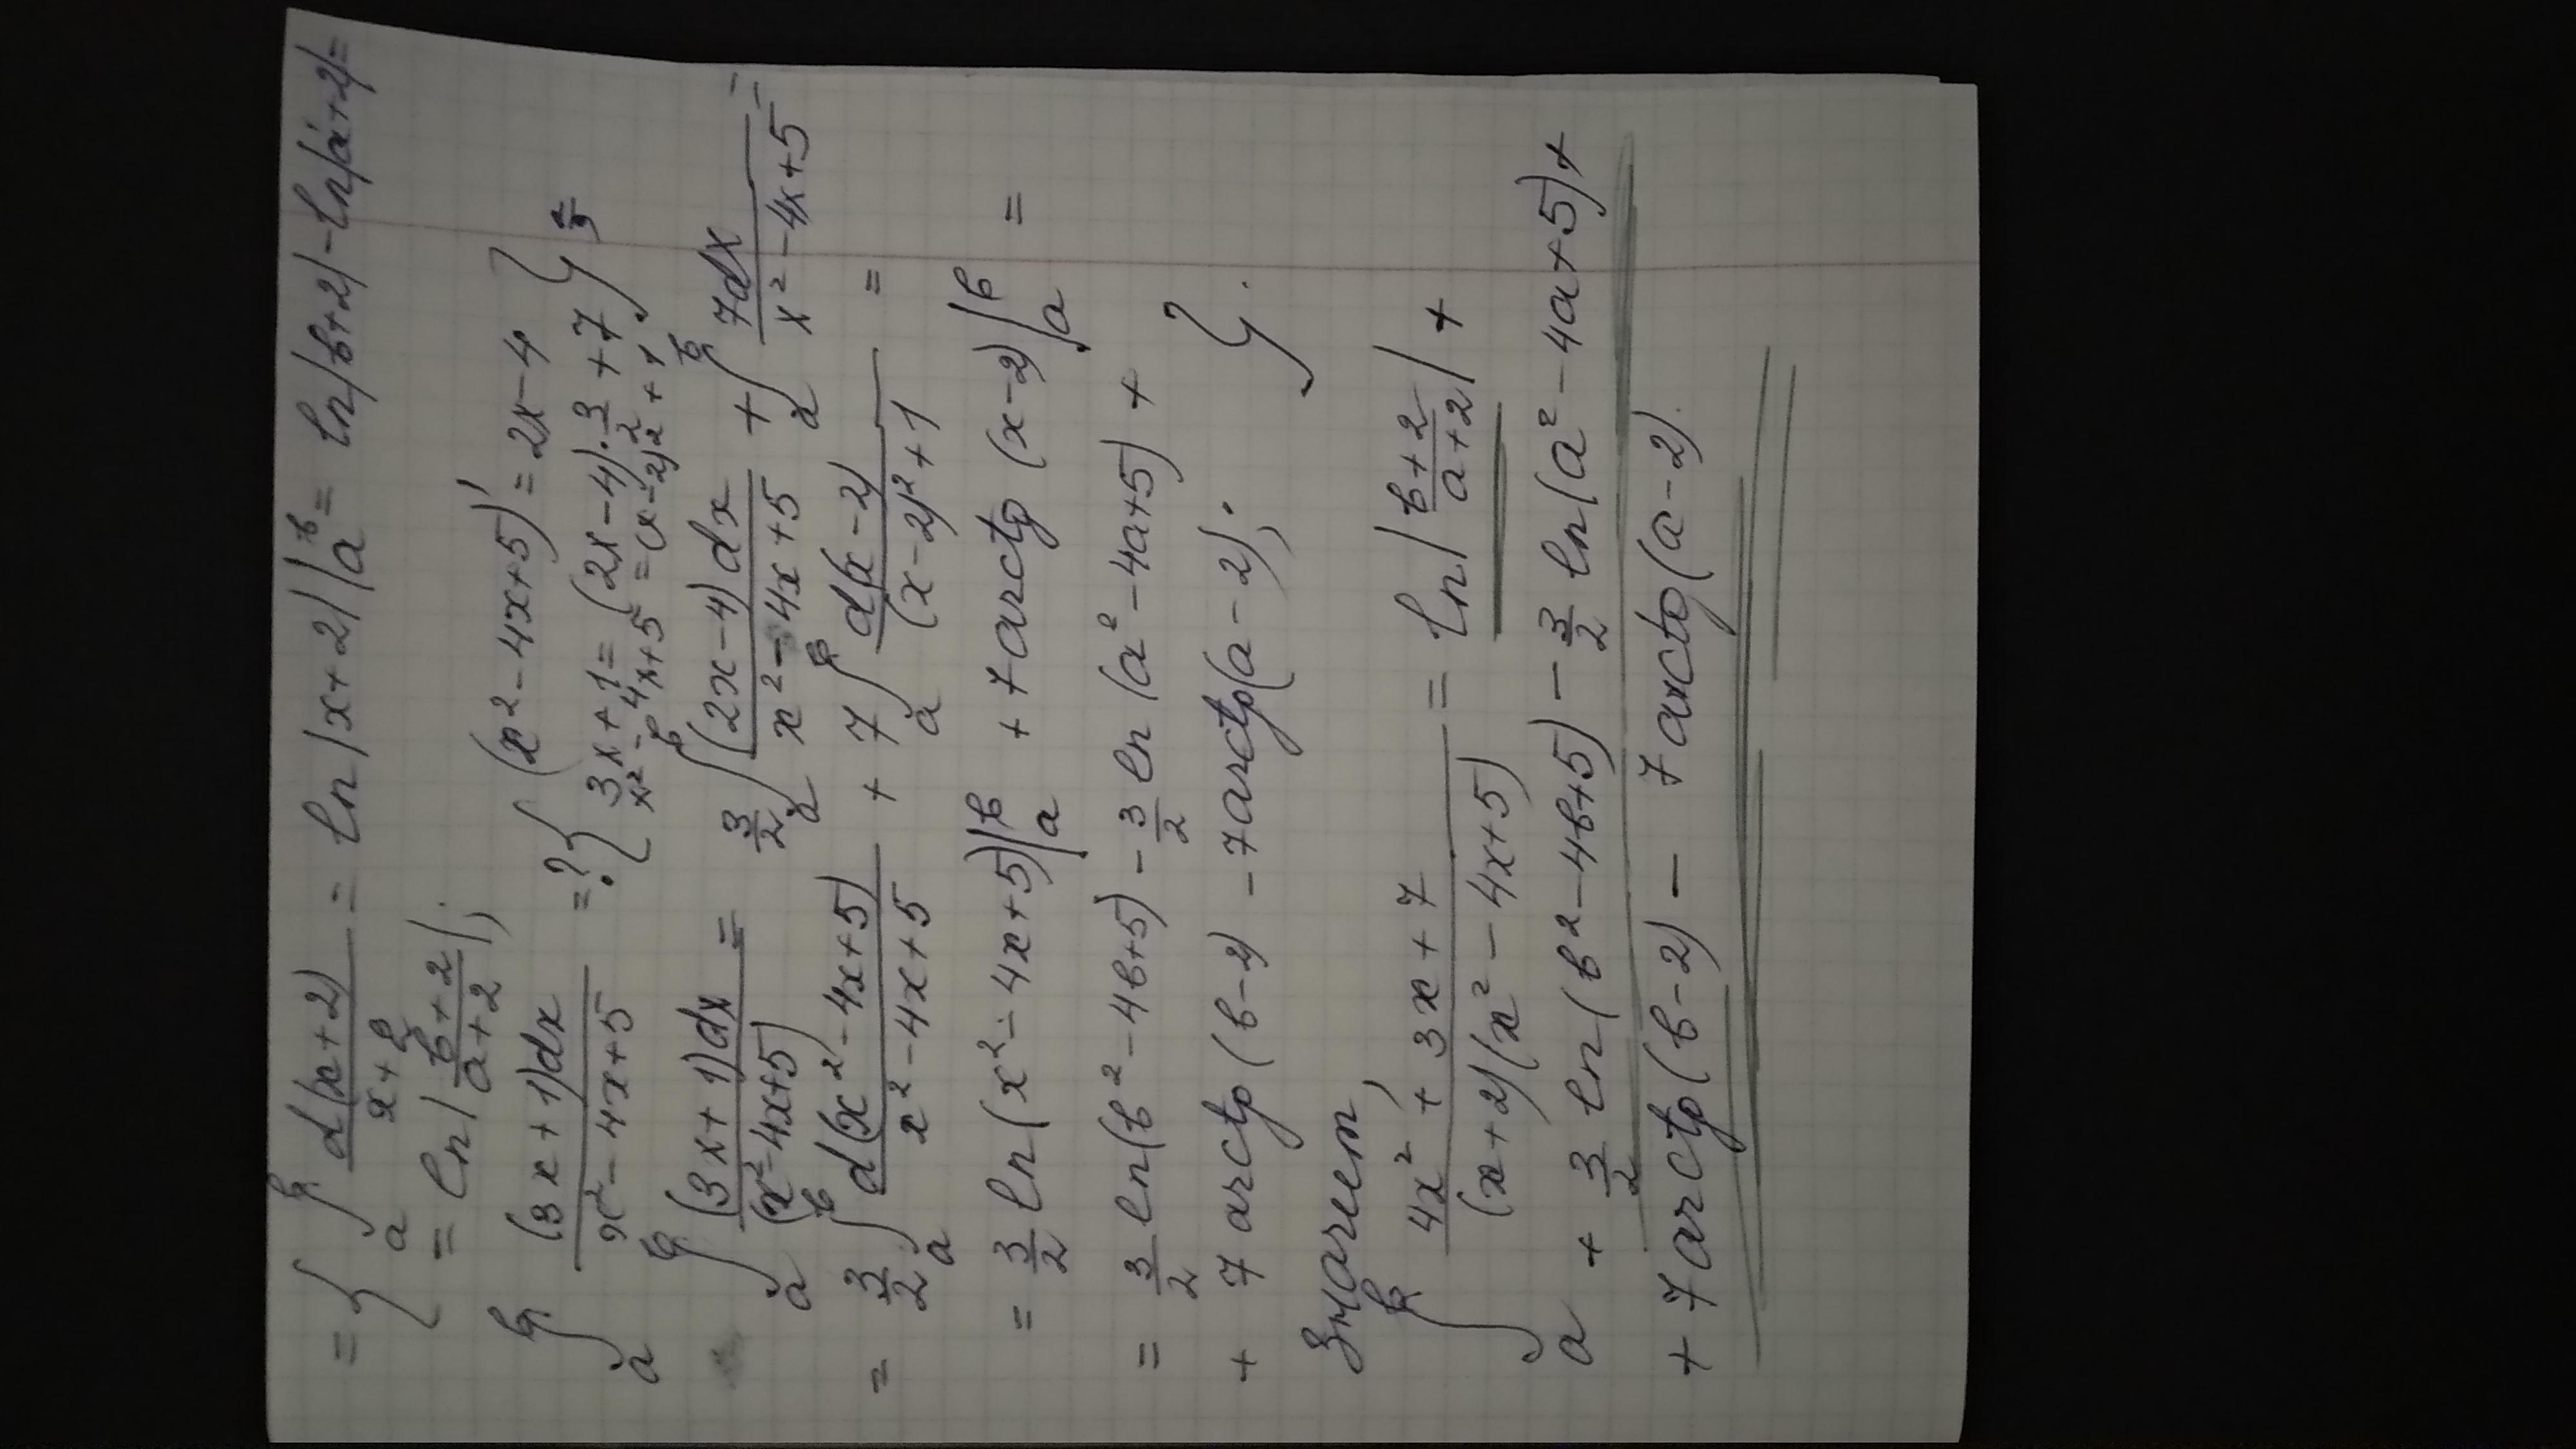 = { ∫ₐᵇ d(x+2)/(x+2) = ln|x+2| |ₐᵇ = ln|b+2| - ln|a+2| =
= ln|(b+2)/(a+2)|;
∫ₐᵇ (3x+1)dx/(x²-4x+5) = ? { (x²-4x+5)' = 2x-4
3x+1 = (2x-4)·3/2 + 7
x²-4x+5 = (x-2)²+1 } =
∫ₐᵇ (3x+1)dx/(x²-4x+5) = 3/2 ∫ₐᵇ (2x-4)dx/(x²-4x+5) + ∫ₐᵇ 7dx/(x²-4x+5) =
= 3/2 ∫ₐᵇ d(x²-4x+5)/(x²-4x+5) + 7 ∫ₐᵇ d(x-2)/((x-2)²+1) =
= 3/2 ln(x²-4x+5)|ₐᵇ + 7 arctg(x-2)|ₐᵇ =
= 3/2 ln(b²-4b+5) - 3/2 ln(a²-4a+5) +
+ 7 arctg(b-2) - 7 arctg(a-2); }.
Значит,
∫ₐᵇ (4x²+3x+7)/((x+2)(x²-4x+5)) = ln|(b+2)/(a+2)| +
+ 3/2 ln(b²-4b+5) - 3/2 ln(a²-4a+5) +
+ 7 arctg(b-2) - 7 arctg(a-2).